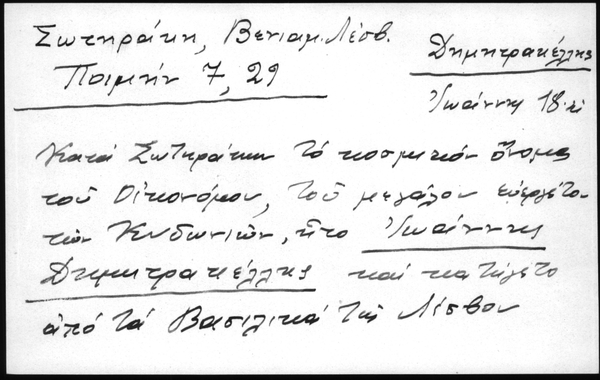 Σωτηράκη, Βενιαμ. Λέσβ.
Ποιμήν 7, 29
Δημητρακέλλης
Ἰωάννης 18. αἰ
Κατά Σωτηράκην τό κοσμικόν ὄνομα
τοῦ Οἰκονόμου, τοῦ μεγάλου εὐεργέτου
τῶν Κυδωνιῶν, ἦτο Ἰωάννης
Δημητρακέλλης καί κατήγετο
ἀπό τά Βασιλικά τῆς Λέσβου